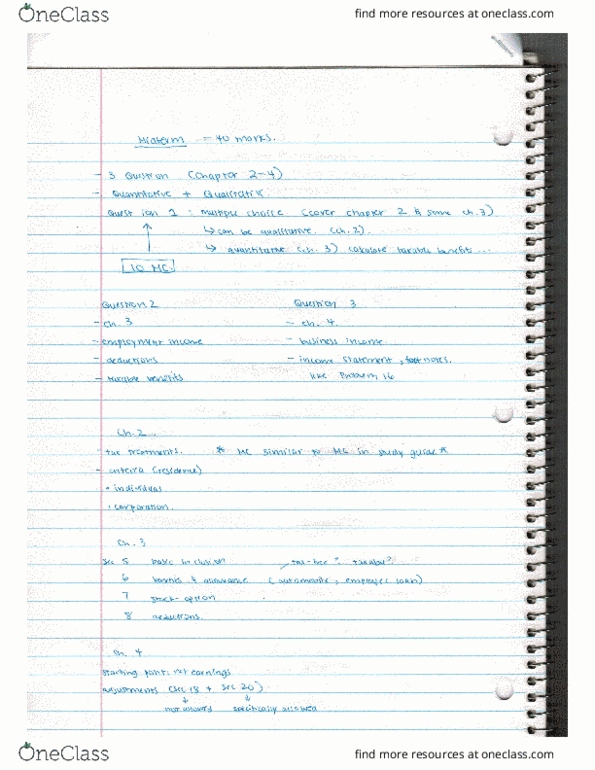 OneClass
find more resources at oneclass.com
Midterm - 40 marks.
- 3 Question (Chapter 2-4)
- Quantitative + Qualitative
Question 1 : multiple choice (cover chapter 2 & some ch.3)
↳ can be qualitative. (ch.2).
↳ quantitative (ch. 3) calculate taxable benefits ...
10 MC.
Question 2
Question 3
- ch. 3
- ch. 4.
- employment income
- business income.
- deductions
- income statement, foot notes.
- taxable benefits
like Problem 16
Ch. 2
- tax treatments. * MC similar to MC in study guide *
- criteria (residence)
• individual
• corporation.
Ch. 3
Sec 5 basic inclusion tax-free? taxable?
6 benefits & allowance (automobile, employee loan)
7 stock-option
8 deductions.
Ch. 4
starting point: net earnings
adjustments (sec 18 + sec 20)
not allowed specifically allowed
OneClass
find more resources at oneclass.com